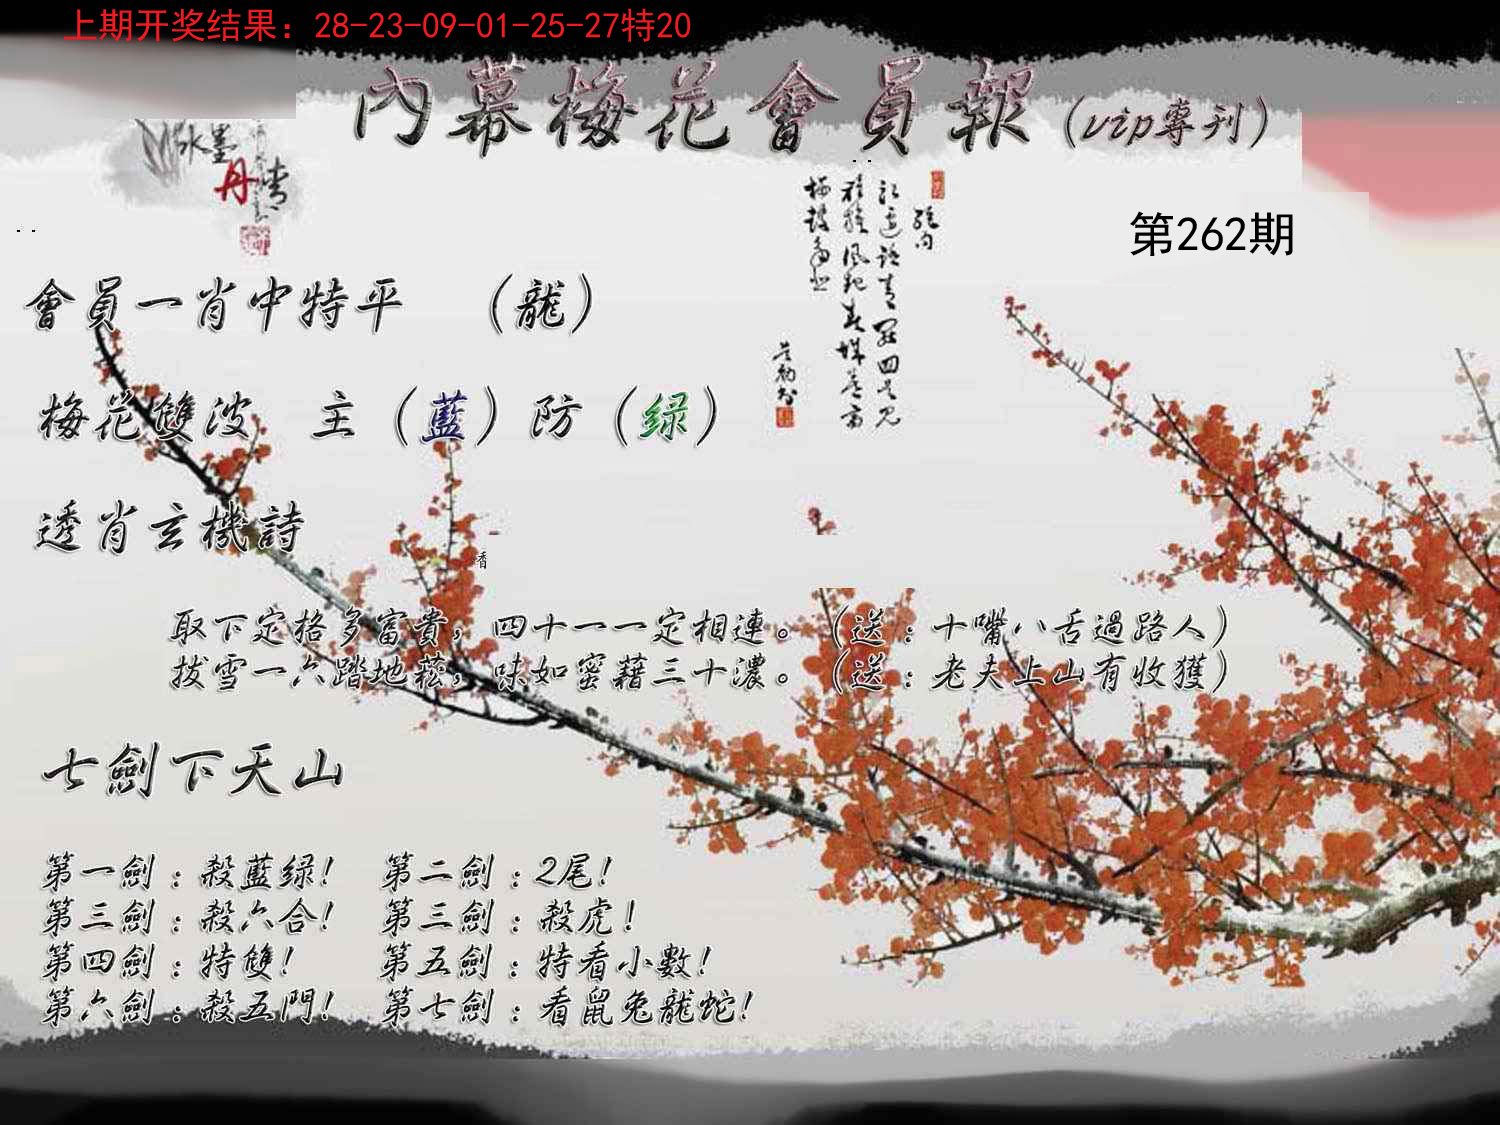 上期开奖结果：28-23-09-01-25-27特20
內幕梅花會員報（vip專刊）
水墨
丹情
第262期
會員一肖中特平 （龍）
梅花雙波 主（藍）防（绿）
透肖玄機詩
香
取下定格多富貴，四十一一定相連。（送：十嘴八舌過路人）
拔雪一六踏地菘，味如蜜藉三十濃。（送：老夫上山有收獲）
七劍下天山
第一劍：殺藍绿！ 第二劍：2尾！
第三劍：殺六合！ 第三劍：殺虎！
第四劍：特雙！ 第五劍：特看小數！
第六劍：殺五門！ 第七劍：看鼠兔龍蛇！